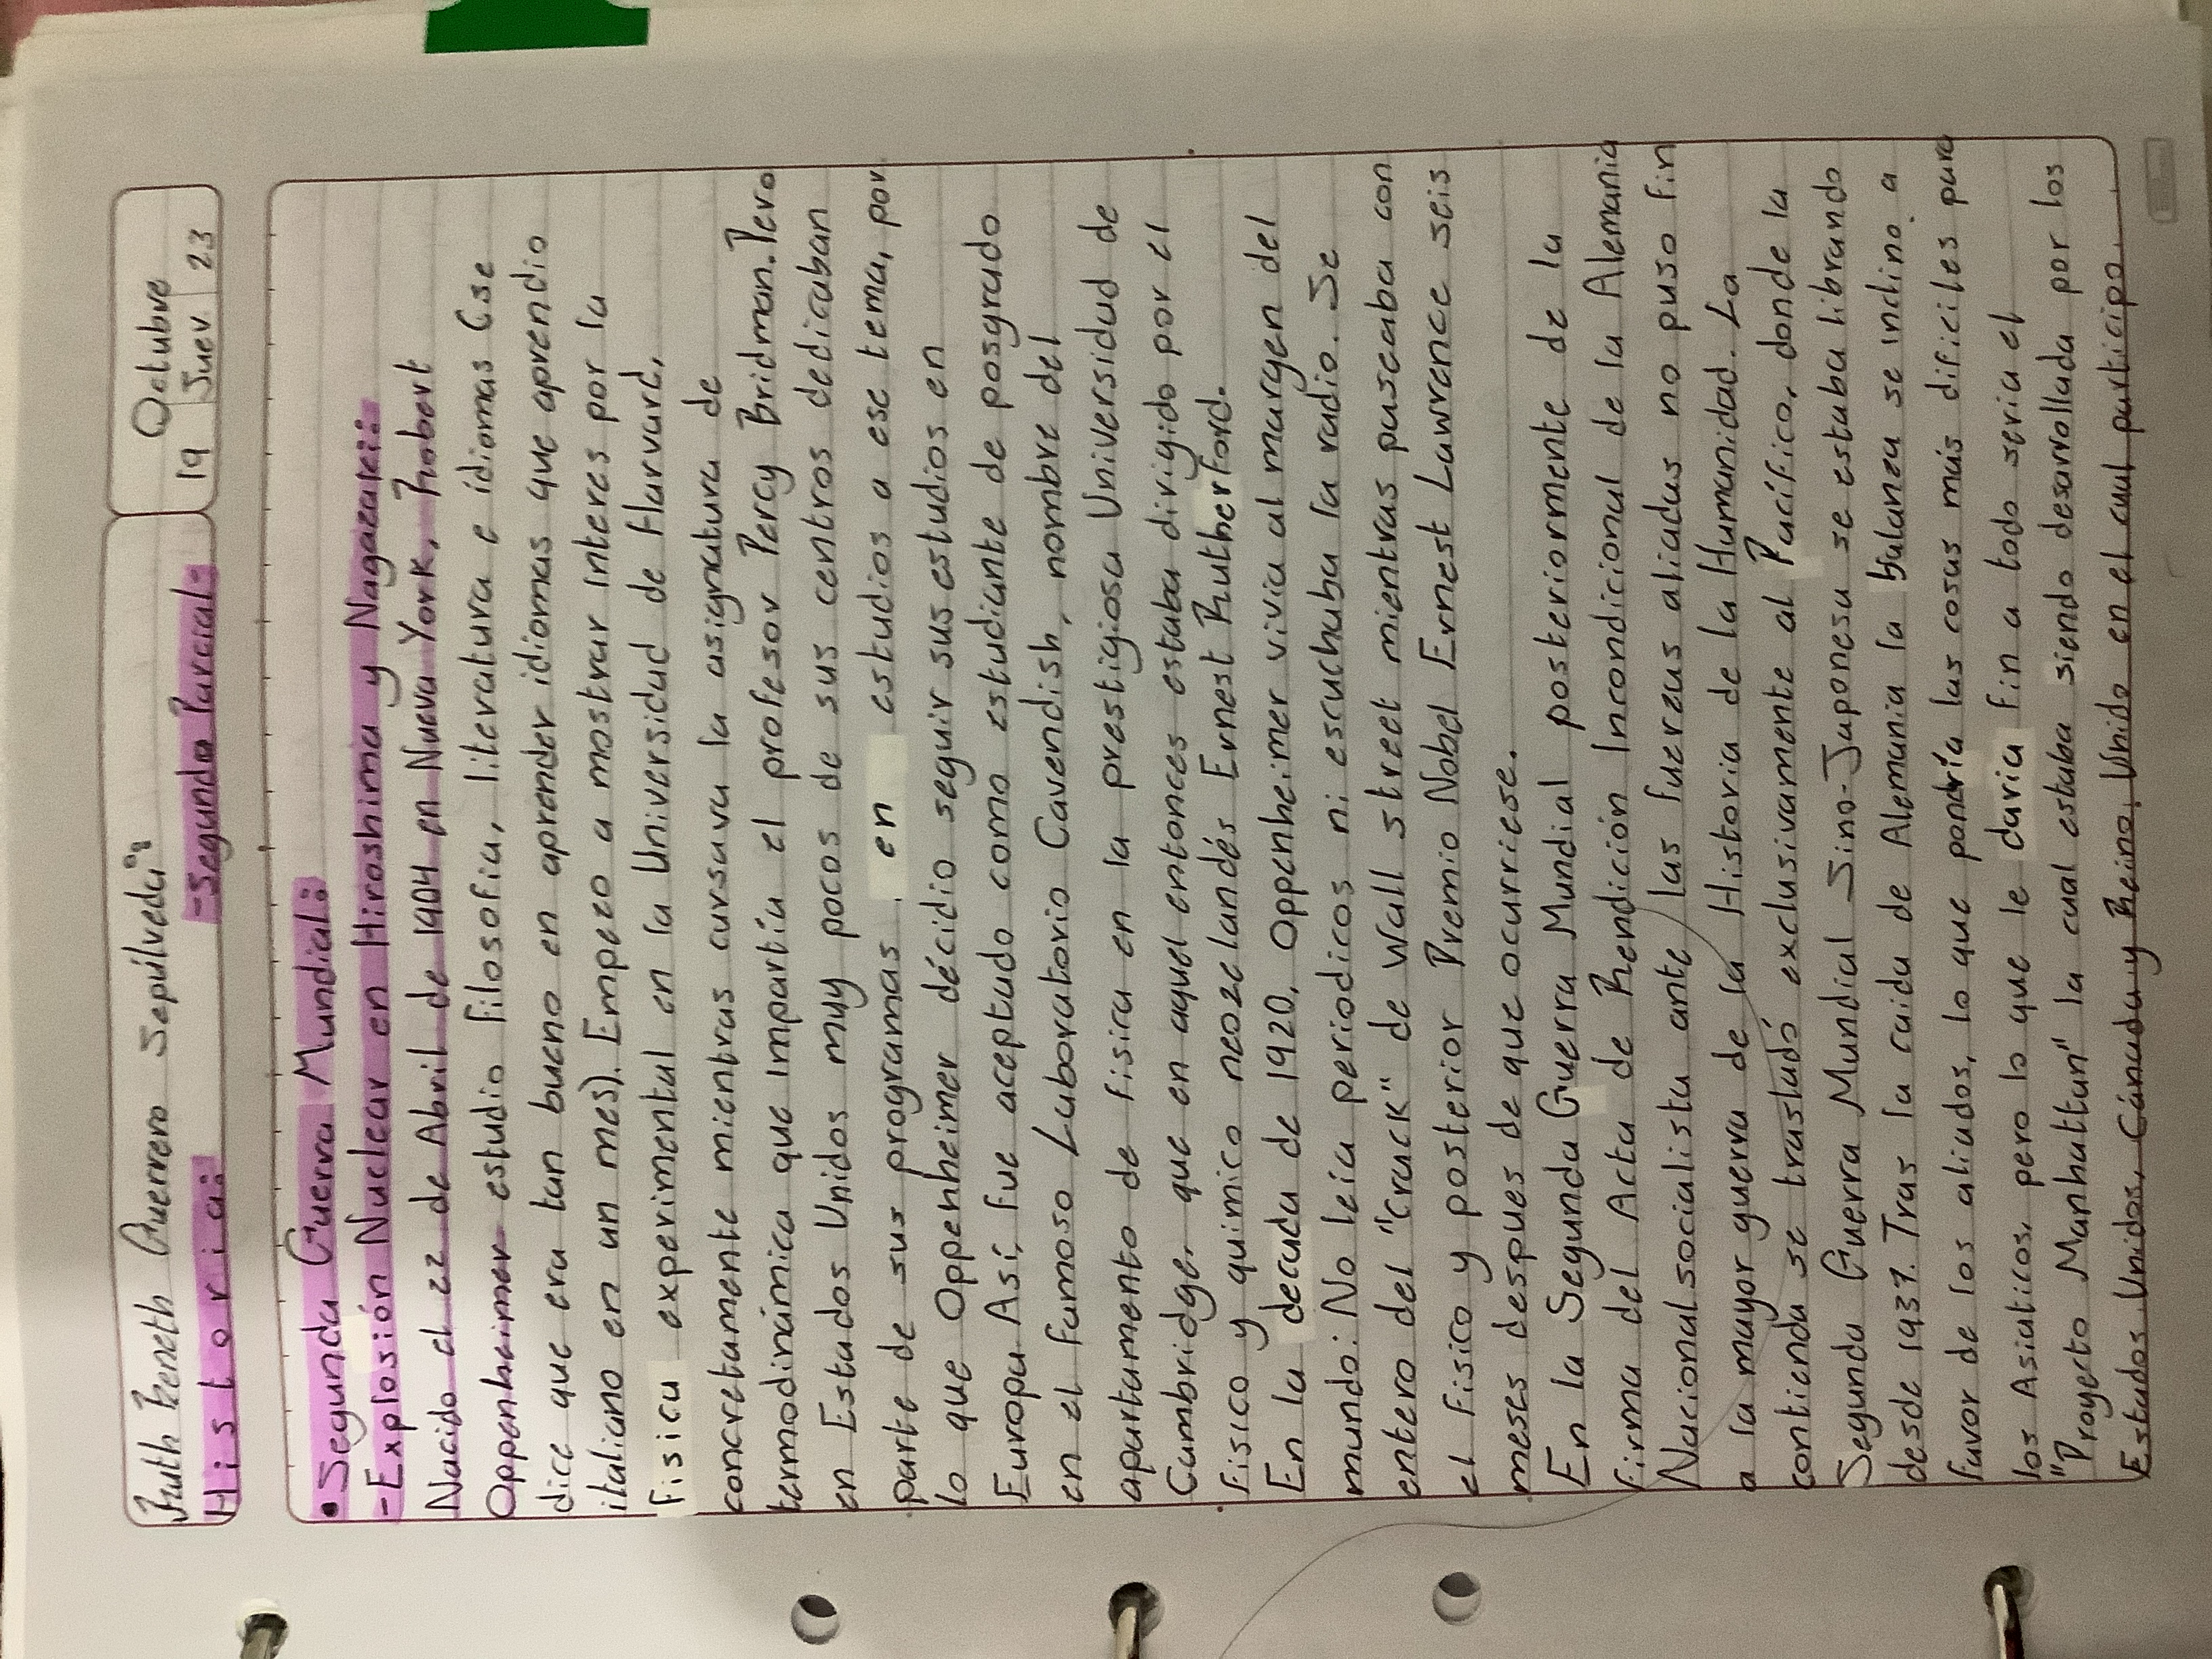 Ruth Reneth Guerrero Sepúlveda
Octubre
Historia:
-Segundo Parcial-
19 Juev 23
• Segunda Guerra Mundial:
- Explosión Nuclear en Hiroshima y Nagazaki:
Nacido el 22 de Abril de 1904 en Nueva York, Robert
Oppenheimer estudio filosofia, literatura e idiomas (se
dice que era tan bueno en aprender idiomas que aprendio
italiano en un mes). Empezo a mostrar interes por la
fisica experimental en la Universidad de Harvard,
concretamente mientras cursava la asignatura de
termodinámica que impartía el profesor Percy Bridman. Pero
en Estados Unidos muy pocos de sus centros dedicaban
parte de sus programas en estudios a ese tema, por
lo que Oppenheimer décidio seguir sus estudios en
Europa Así, fue aceptado como estudiante de posgrado
en el famoso Laboratorio Cavendish, nombre del
apartamento de fisica en la prestigiosa Universidad de
Cambridge, que en aquel entonces estaba dirigido por el
fisico y quimico neozelandés Ernest Rutherford.
En la decada de 1920, Oppenheimer vivia al margen del
mundo: No leía periodicos ni escuchaba la radio. Se
entero del "crack" de Wall street mientras paseaba con
el fisico y posterior Premio Nobel Ernest Lawrence seis
meses despues de que ocurriese.
En la Segunda Guerra Mundial posteriormente de la
firma del Acta de Rendición Incondicional de la Alemania
Nacionalsocialista ante las fuerzas aliadas no puso fin
a la mayor guerra de la Historia de la Humanidad. La
contienda se trasladó exclusivamente al Pacífico, donde la
Segunda Guerra Mundial Sino-Japonesa se estaba librando
desde 1937. Tras la caida de Alemania la balanza se inclino a
favor de los aliados, lo que pondría las cosas más dificiles para
los Asiaticos, pero lo que le daria fin a todo seria el
"Proyecto Manhattan" la cual estaba siendo desarrollada por los
Estados Unidos, Cánada y Reino Unido en el cual participo